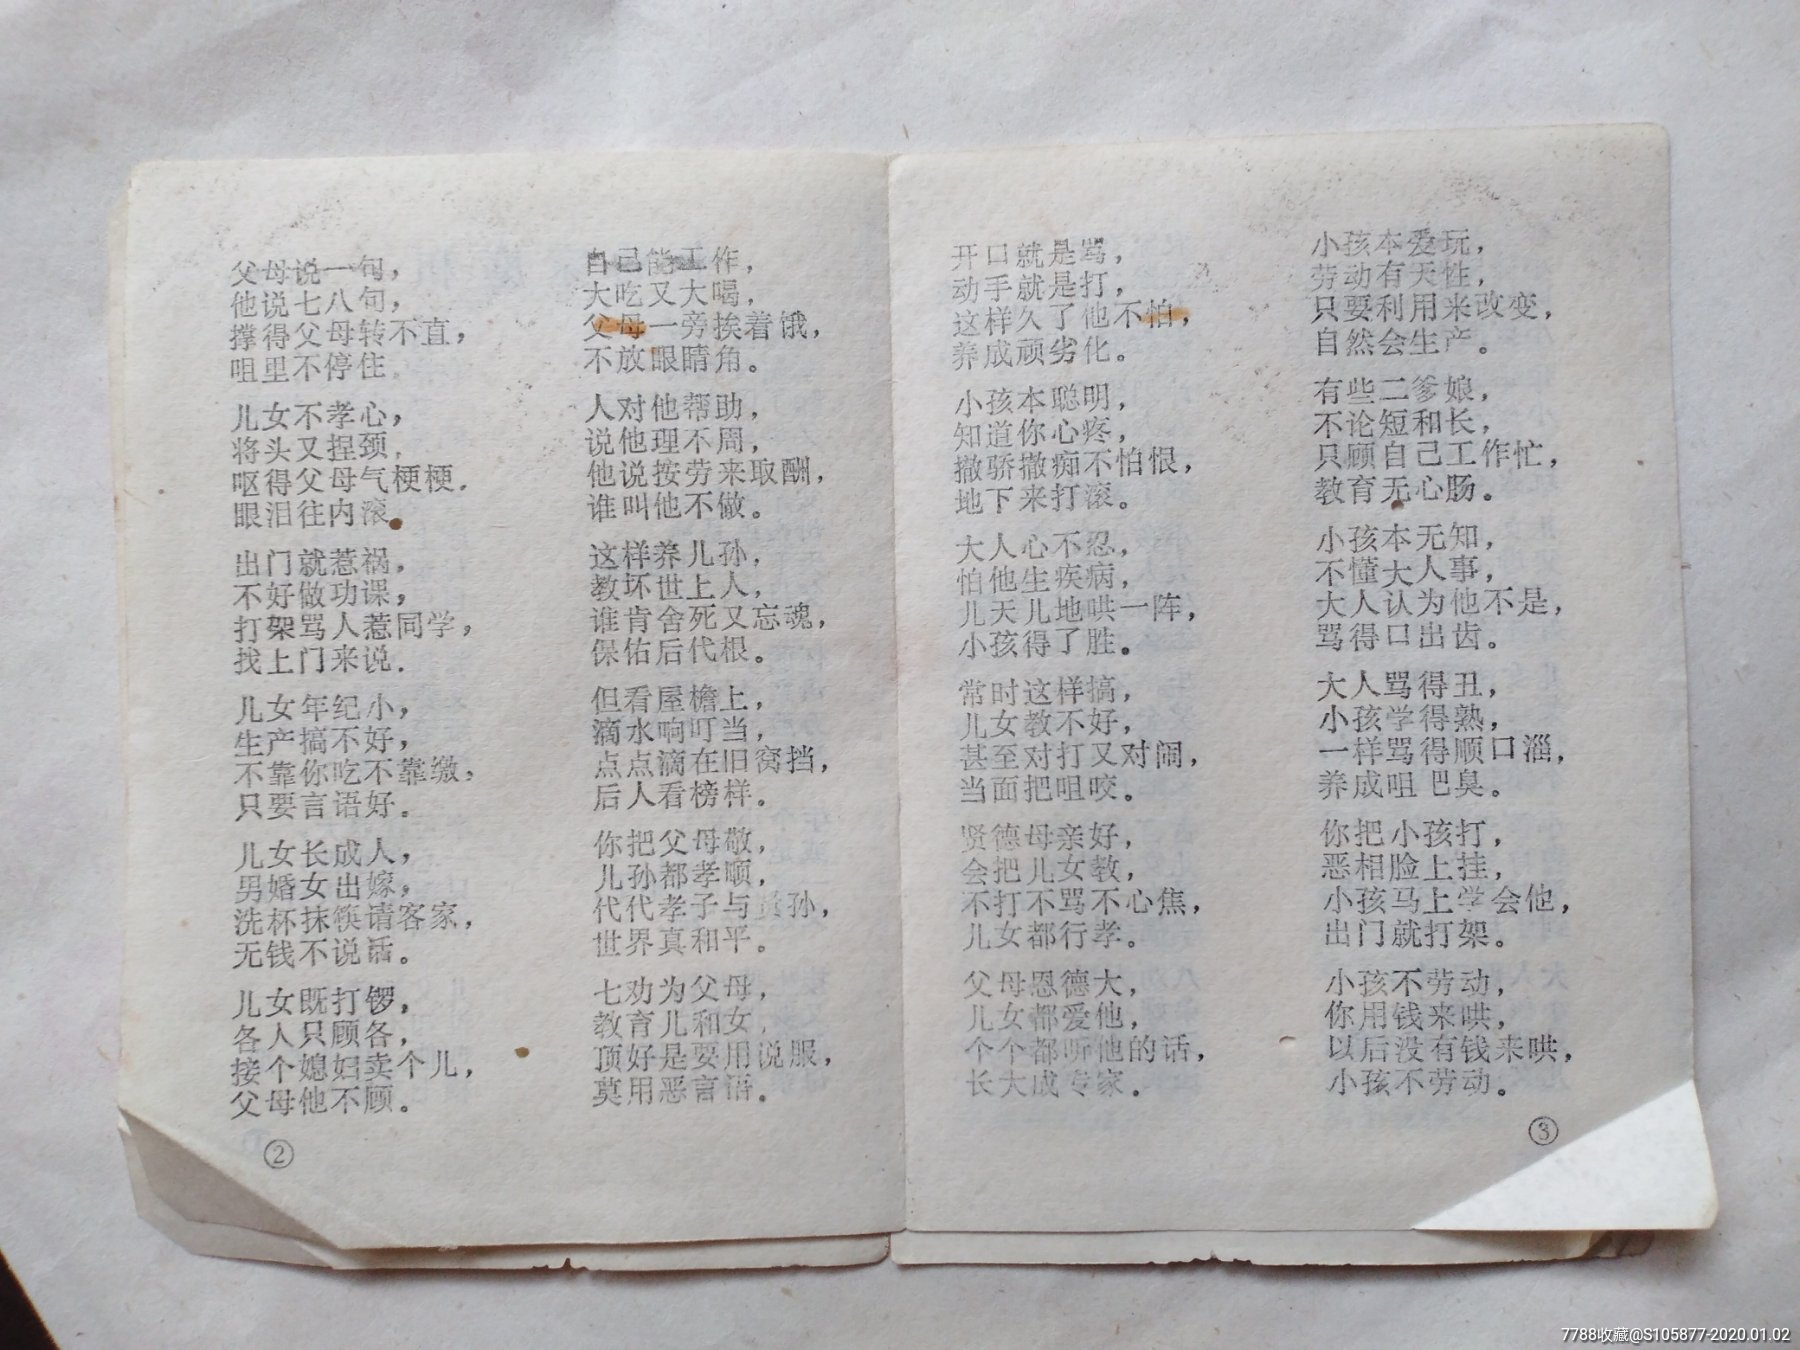 父母说一句，
他说七八句，
撑得父母转不直，
咀里不停住。
儿女不孝心，
将头又捏颈，
呕得父母气梗梗．
眼泪往内滚。
出门就惹祸，
不好做功课，
打架骂人惹同学，
找上门来说．
儿女年纪小，
生产搞不好，
不靠你吃不靠缴，
只要言语好。
儿女长成人，
男婚女出嫁，
洗杯抹筷请客家，
无钱不说话。
儿女既打锣，
各人只顾各，
接个媳妇卖个儿，
父母他不顾。
②
自己能工作，
大吃又大喝，
父母一旁挨着饿，
不放眼睛角。
人对他帮助，
说他理不周，
他说按劳来取酬，
谁叫他不做。
这样养儿孙，
教坏世上人，
谁肯舍死又忘魂，
保佑后代根。
但看屋檐上，
滴水响叮当，
点点滴在旧窝挡，
后人看榜样。
你把父母敬，
儿孙都孝顺，
代代孝子与贤孙，
世界真和平。
七劝为父母，
教育儿和女，
顶好是要用说服，
莫用恶言语。
开口就是骂，
动手就是打，
这样久了他不怕，
养成顽劣化。
小孩本聪明，
知道你心疼，
撒骄撒痴不怕恨，
地下来打滚。
大人心不忍，
怕他生疾病，
儿天儿地哄一阵，
小孩得了胜。
常时这样搞，
儿女教不好，
甚至对打又对闹，
当面把咀咬。
贤德母亲好，
会把儿女教，
不打不骂不心焦，
儿女都行孝。
父母恩德大，
儿女都爱他，
个个都听他的话，
长大成专家．
小孩本爱玩，
劳动有天性，
只要利用来改变，
自然会生产。
有些二爹娘，
不论短和长，
只顾自己工作忙，
教育无心肠。
小孩本无知，
不懂大人事，
大人认为他不是，
骂得口出齿。
大人骂得丑，
小孩学得熟，
一样骂得顺口溜，
养成咀巴臭。
你把小孩打，
恶相脸上挂，
小孩马上学会他，
出门就打架。
小孩不劳动，
你用钱来哄，
以后没有钱来哄，
小孩不劳动。
③
7788收藏@S105877-2020.01.02